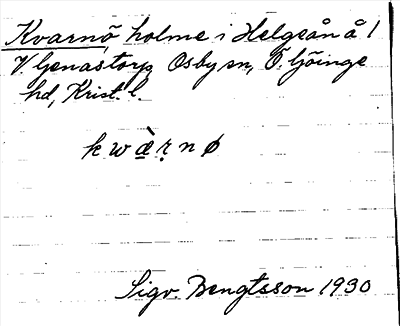 Kvarnö holme i Helgeån å 1
V. Genastorp, Osby sn, Ö. Göinge
hd, Krist. l.
k w æ̀ ṛ n ø
Sigv. Bengtsson 1930